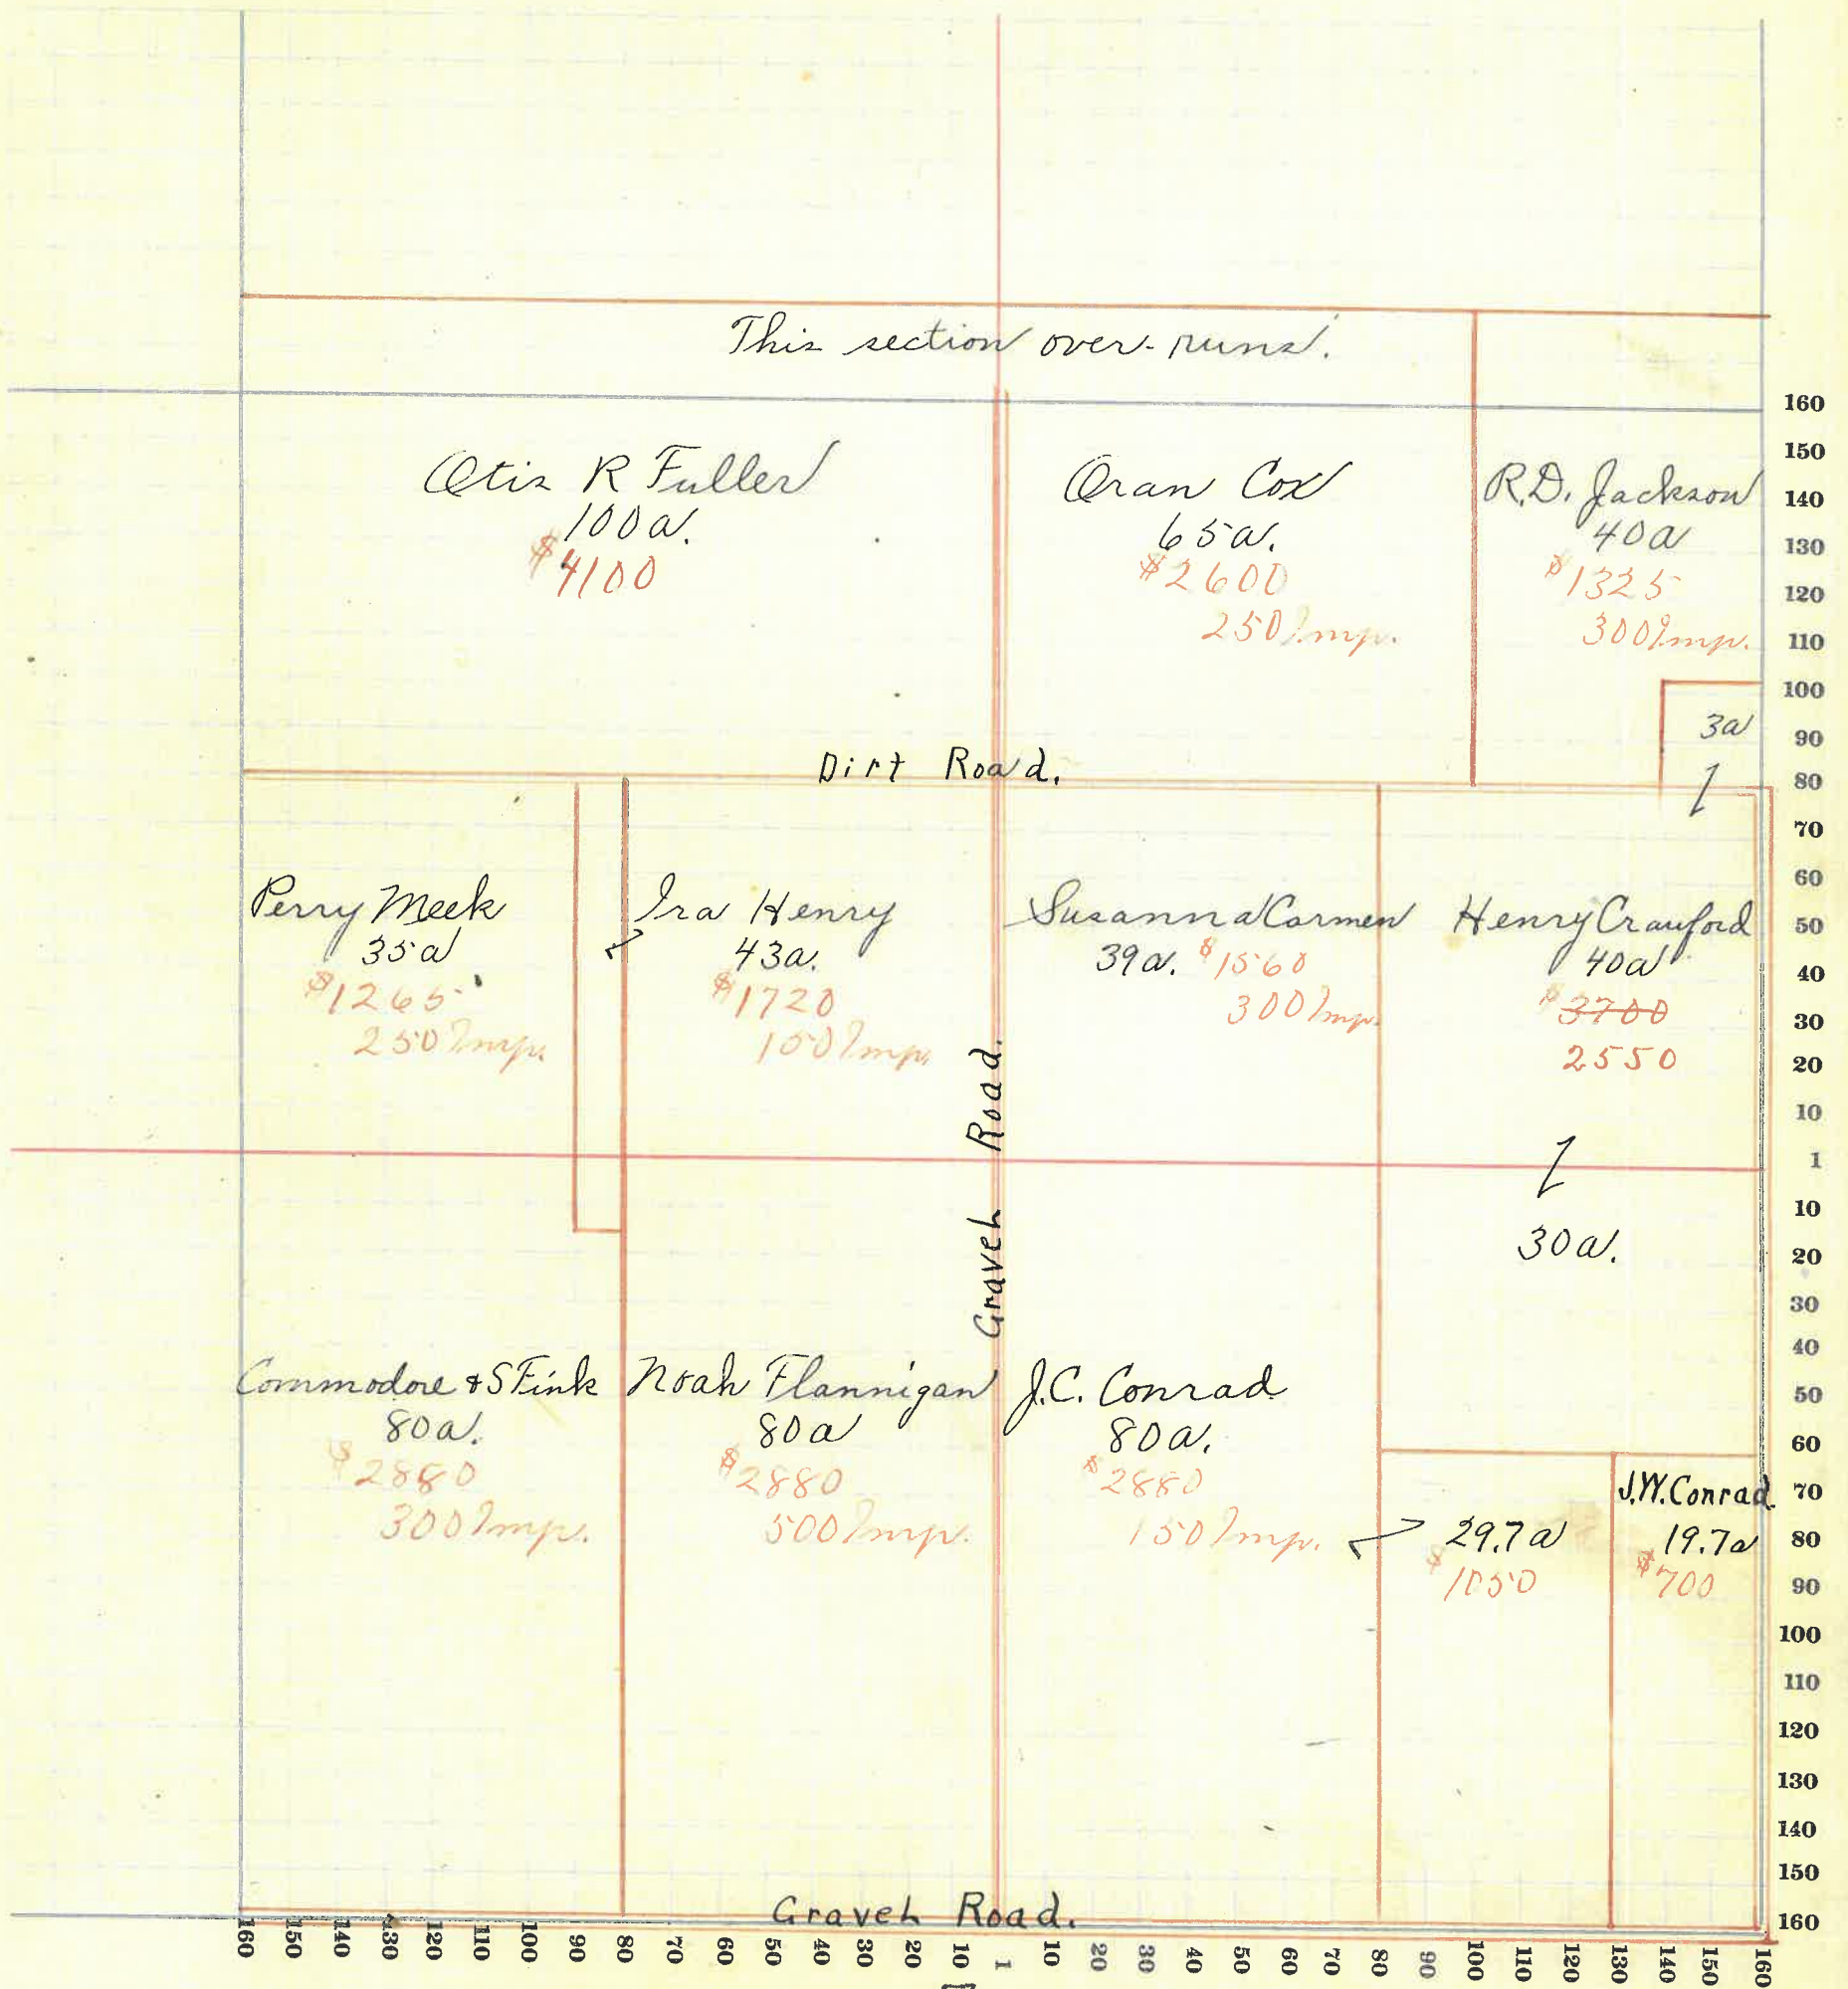 This section over-runs.
Otis R Fuller
100a.
$4100
Oran Cox
65a.
$2600
250 Imp.
R.D. Jackson
40a
$1325
300 Imp.
3a
Dirt Road.
Perry Meek
35a
$1265
250 Imp.
Ira Henry
43a.
$1720
150 Imp.
Susanna Carmen
39a. $1560
300 Imp.
Henry Crauford
40a
$3700
2550
30a.
Gravel Road.
Commodore & S Fink
80a.
$2880
300 Imp.
Noah Flannigan
80a
$2880
500 Imp.
J.C. Conrad
80a.
$2880
150 Imp.
29.7a
$1050
J.W. Conrad.
19.7a
$700
Gravel Road.
160
150
140
130
120
110
100
90
80
70
60
50
40
30
20
10
1
10
20
30
40
50
60
70
80
90
100
110
120
130
140
150
160
160 150 140 130 120 110 100 90 80 70 60 50 40 30 20 10 1 10 20 30 40 50 60 70 80 90 100 110 120 130 140 150 160